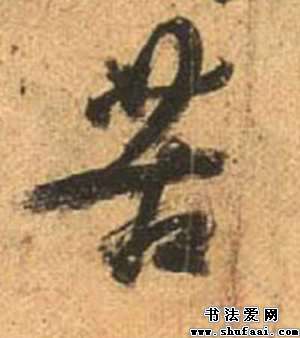 苦
书法爱网
www.shufaai.com